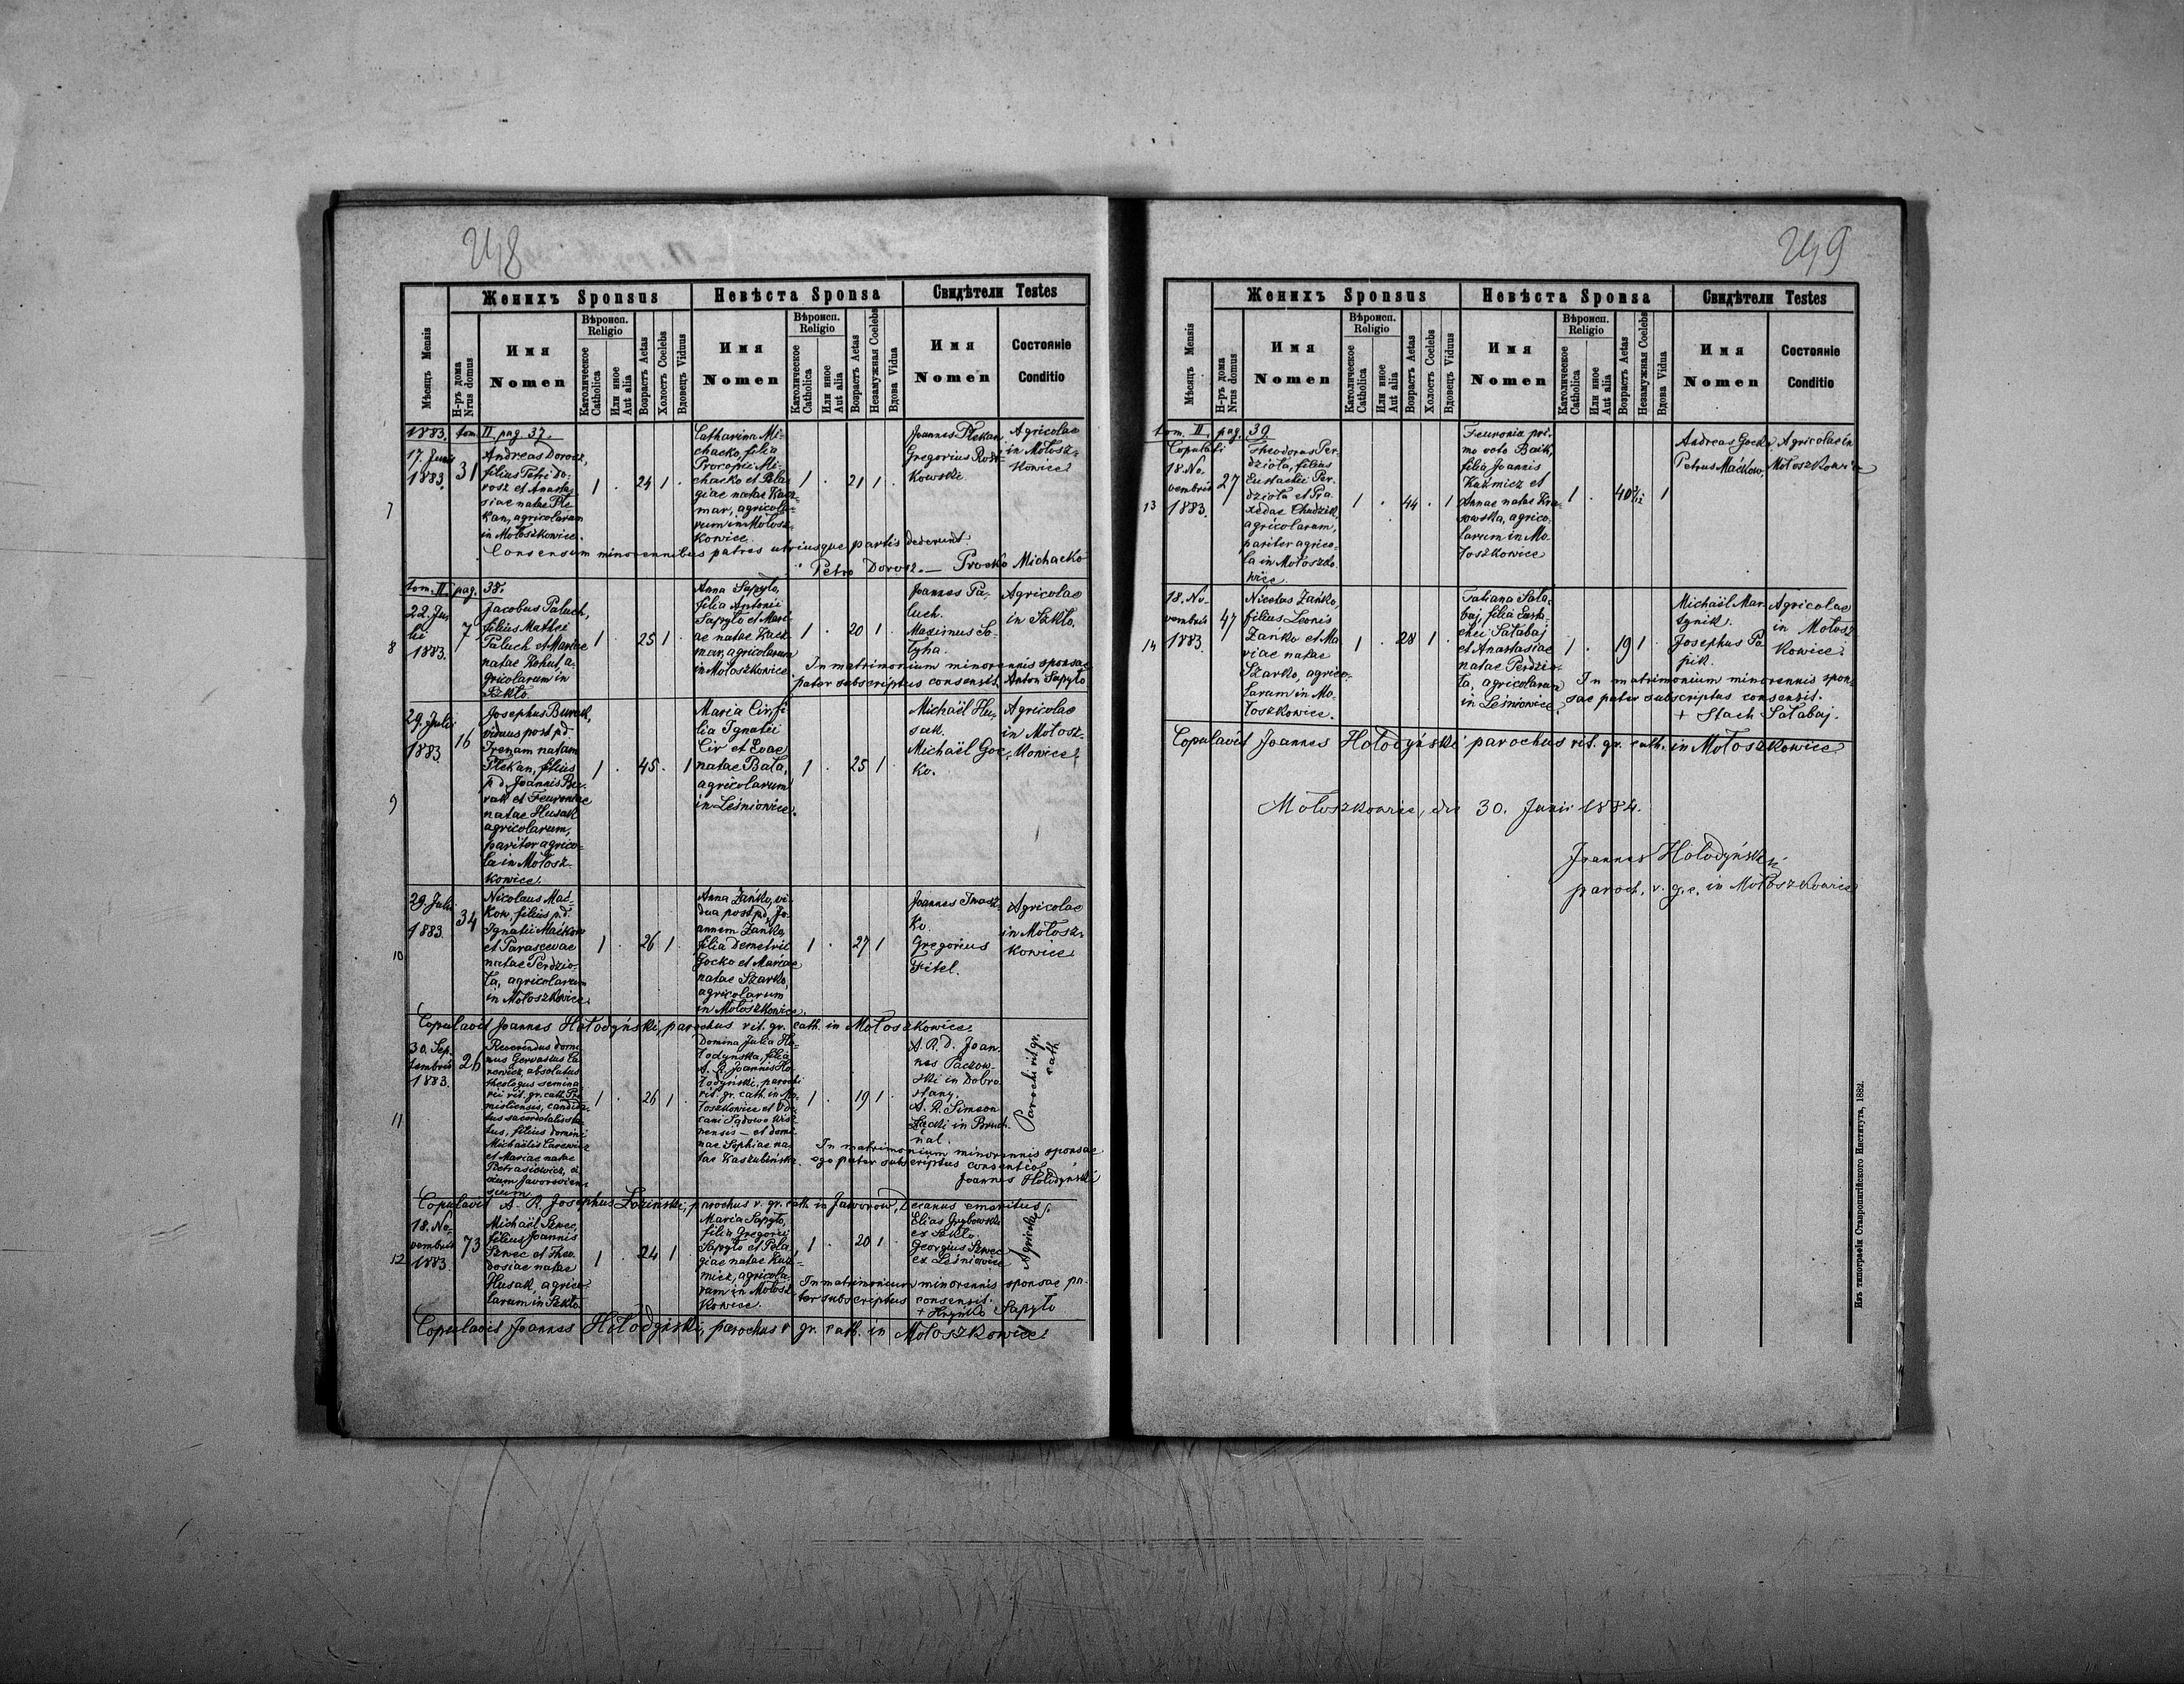 248
Женихъ Sponsus
Невѣста Sponsa
Свидѣтели Testes
Мѣсяцъ Mensis
Н-ръ дома
Nrus domus
Имя
Nomen
Вѣроисп.
Religio
Католическое
Catholica
Или иное
Aut alia
Возрастъ Aetas
Холостъ Coelebs
Вдовецъ Viduus
Имя
Nomen
Вѣроисп.
Religio
Католическое
Catholica
Или иное
Aut alia
Возрастъ Aetas
Незамужная Coelebs
Вдова Vidua
Имя
Nomen
Состояніе
Conditio
1883. tom. II. pag. 37.
7
17. Junii
1883.
31
Andreas Dorosz,
filius Petri Do-
rosz et Anasta-
siae natae Ple-
kan, agricolarum
in Mołoszkowice.
1 . 24 1 .
Catharina Mi-
chacko, filia
Procopii Mi-
chacko et Pela-
giae natae Kacz-
mar, agricola-
rum in Mołosz-
kowice.
1 . 21 1 .
Joannes Plekan
Gregorius
kowski
Agricolae
in Mołosz-
kowice
Consensum minorennibus patres utriusque partis dederunt.
Petro Dorosz. — Procko Michacko
tom. II. pag. 38.
8
22. Ju-
lii
1883.
7
Jacobus Paluch,
filius Mathei
Paluch et Mariae
natae Kohut, a-
gricolarum in
Szkło.
1 . 25 1 .
Anna Sapyło,
filia Antonii
Sapyło et Mari-
ae natae Kacz-
mar, agricolarum
in Mołoszkowice.
1 . 20 1 .
Joannes Pa-
luch.
Maximus So-
lyha.
Agricolae
in Szkło.
In matrimonium minorennis sponsae
pater subscriptus consensit. Anton Sapyło
9
29. Julii
1883.
16
Josephus Burak,
viduus post p.d.
Irenam natam
Plekan, filius
p.d. Joannis Bu-
rak et Feuroniae
natae Husak
agricolarum,
pariter agrico-
la in Mołosz-
kowice.
1 . 45 . 1
Maria Cir, fi-
lia Ignatii
Cir et Evae
natae Bała,
agricolarum
in Leśniowice.
1 . 25 1 .
Michaël Hu-
sak.
Michaël Goc-
ko.
Agricolae
in Mołosz-
kowice.
10
29. Julii
1883.
34
Nicolaus Mać-
kow, filius p.d.
Ignatii Maćkow
et Parascevae
natae Perdzio-
ła, agricolarum
in Mołoszkowice.
1 . 26 1 .
Anna Zańko, vi-
dua post p.d. Jo-
annem Zańko,
filia Demetrii
Gocko et Mariae
natae Szarko,
agricolarum
in Mołoszkowice.
1 . 27 1
Joannes Iwasz-
ko.
Gregorius
Fitel.
Agricolae
in Mołosz-
kowice
Copulavit Joannes Hołodyński, parochus rit. gr. cath. in Mołoszkowice.
11
30. Sep-
tembris
1883.
26
Reverendus domi-
nus Gervasius Ca-
rewicz, absolutus
theologus semina-
rii rit. gr. cath. Pre-
misliensis, candida-
tus sacerdotalis sta-
tus, filius domini
Michaëlis Carewicz
et Mariae natae
Pietrasiewicz, ci-
vium Javorovien-
sium
1 . 26 1 .
Domina Julia Ho-
łodynska, filia
A. R. Joannis Ho-
łodyński, parochi
rit. gr. cath. in Mo-
łoszkowice et De-
cani Sądowo Wisz-
nensis — et domi-
nae Sophiae na-
tae Kaszubińska.
1 . 19 1 .
A. R. d. Joan-
nes Paczow-
ski in Dobro-
stany.
A. R. Simeon
in Bruch-
nal.
Parochi rit. gr.
cath.
In matrimonium minorennis sponsae
ego pater subscriptus consentio.
Joannes Hołodyński
Copulavit A. R. Josephus Łoziński, parochus r. gr. cath. in Jaworow, Decanus emeritus.
12
18. No-
vembris
1883.
73
Michaël Szwec,
filius Joannis
Szwec et Theo-
dosiae natae
Husak, agrico-
larum in Szkło.
1 . 24 1 .
Maria Sapyło,
filia Gregorii
Sapyło et Pela-
giae natae Kaź-
micz, agricola-
rum in Mołosz-
kowice.
1 . 20 1 .
Elias Grybowski
ex Szkło.
Georgius Szwec
ex Leśniowice
Agricolae
In matrimonium minorennis sponsae pa-
ter subscriptus consensit.
+ Hryńko Sapyło
Copulavit Joannes Hołodyński, parochus r. gr. cath. in Mołoszkowice.
249
Женихъ Sponsus
Невѣста Sponsa
Свидѣтели Testes
Мѣсяцъ Mensis
Н-ръ дома
Nrus domus
Имя
Nomen
Вѣроисп.
Religio
Католическое
Catholica
Или иное
Aut alia
Возрастъ Aetas
Холостъ Coelebs
Вдовецъ Viduus
Имя
Nomen
Вѣроисп.
Religio
Католическое
Catholica
Или иное
Aut alia
Возрастъ Aetas
Незамужная Coelebs
Вдова Vidua
Имя
Nomen
Состояніе
Conditio
tom. II. pag. 39
Copulati
13
18. No-
vembris
1883.
27
Theodorus Per-
dzioła, filius
Eustachii Per-
dzioła et Pra-
xedae Chudzik,
agricolarum,
pariter agrico-
la in Mołoszko-
wice.
1 . 44 . 1
Feuronia pri-
mo voto Baik,
filia Joannis
Kaźmicz et
Annae natae Kra-
sowska, agrico-
larum in Mo-
łoszkowice
1 . 40 3/12 1
Andreas Gocko
Petrus Maćkow,
Agricolae in
Mołoszkowice
14
18. No-
vembris
1883.
47
Nicetas Zańko,
filius Leonis
Zanko et Ma-
riae natae
Szarko, agrico-
larum in Mo-
łoszkowice.
1 . 28 1 .
Tatiana Sała-
baj, filia Eusta-
chii Sałabaj
et Anastasiae
natae Perdzio-
ła, agricolarum
in Leśniowice.
1 . 19 1 .
Michaël Mar-
tynik.
Josephus Pa-
pik.
Agricolae
in Mołosz-
kowice.
In matrimonium minorennis spon-
sae pater subscriptus consensit.
+ Stach Sałabaj.
Copulavit Joannes Hołodyński parochus rit. gr. cath. in Mołoszkowice.
Mołoszkowice, die 30. Junii 1884.
Joannes Hołodyński
paroch. r. g. c. in Mołoszkowice
Изъ типографіи Ставропигійского Института, 1882.